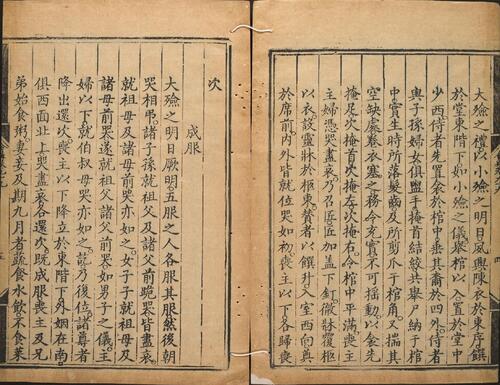 大殮之禮以小殮之明日夙興陳衣於東序饌
於堂東階下如小殮之儀舉棺以入置於堂中
少西侍者先置衾於棺中垂其裔於四外侍者
與子孫婦女俱盥手掩首結絞共舉尸納于棺
中實生時所落髮齒及所剪爪于棺角又揣其
空缺處卷衣塞之務令充實不可搖動以金先
掩足次掩首次掩左次掩右令棺中平滿喪主
主婦憑哭盡哀乃召匠加蓋下釘徹牀覆柩
以衣設靈牀於柩東贊者以饌升入室西向奠
於席前內外皆就位哭如初喪主以下各歸喪
次
成服
大殮之明日厥明五服之人各服其服然後朝
哭相弔諸子孫就祖父及諸父前跪哭皆盡哀
就祖母及諸母前哭亦如之女子子就祖母及
諸母前哭遂就祖父諸父前哭如男子之儀主
婦以下就伯叔母哭亦如之訖乃復位諸尊者
降出還次喪主以下降立於東階下外姻在南
俱西面北上哭盡哀各還次既成服喪主及兄
弟始食粥妻妾及期九月者蔬食水飲不食菜